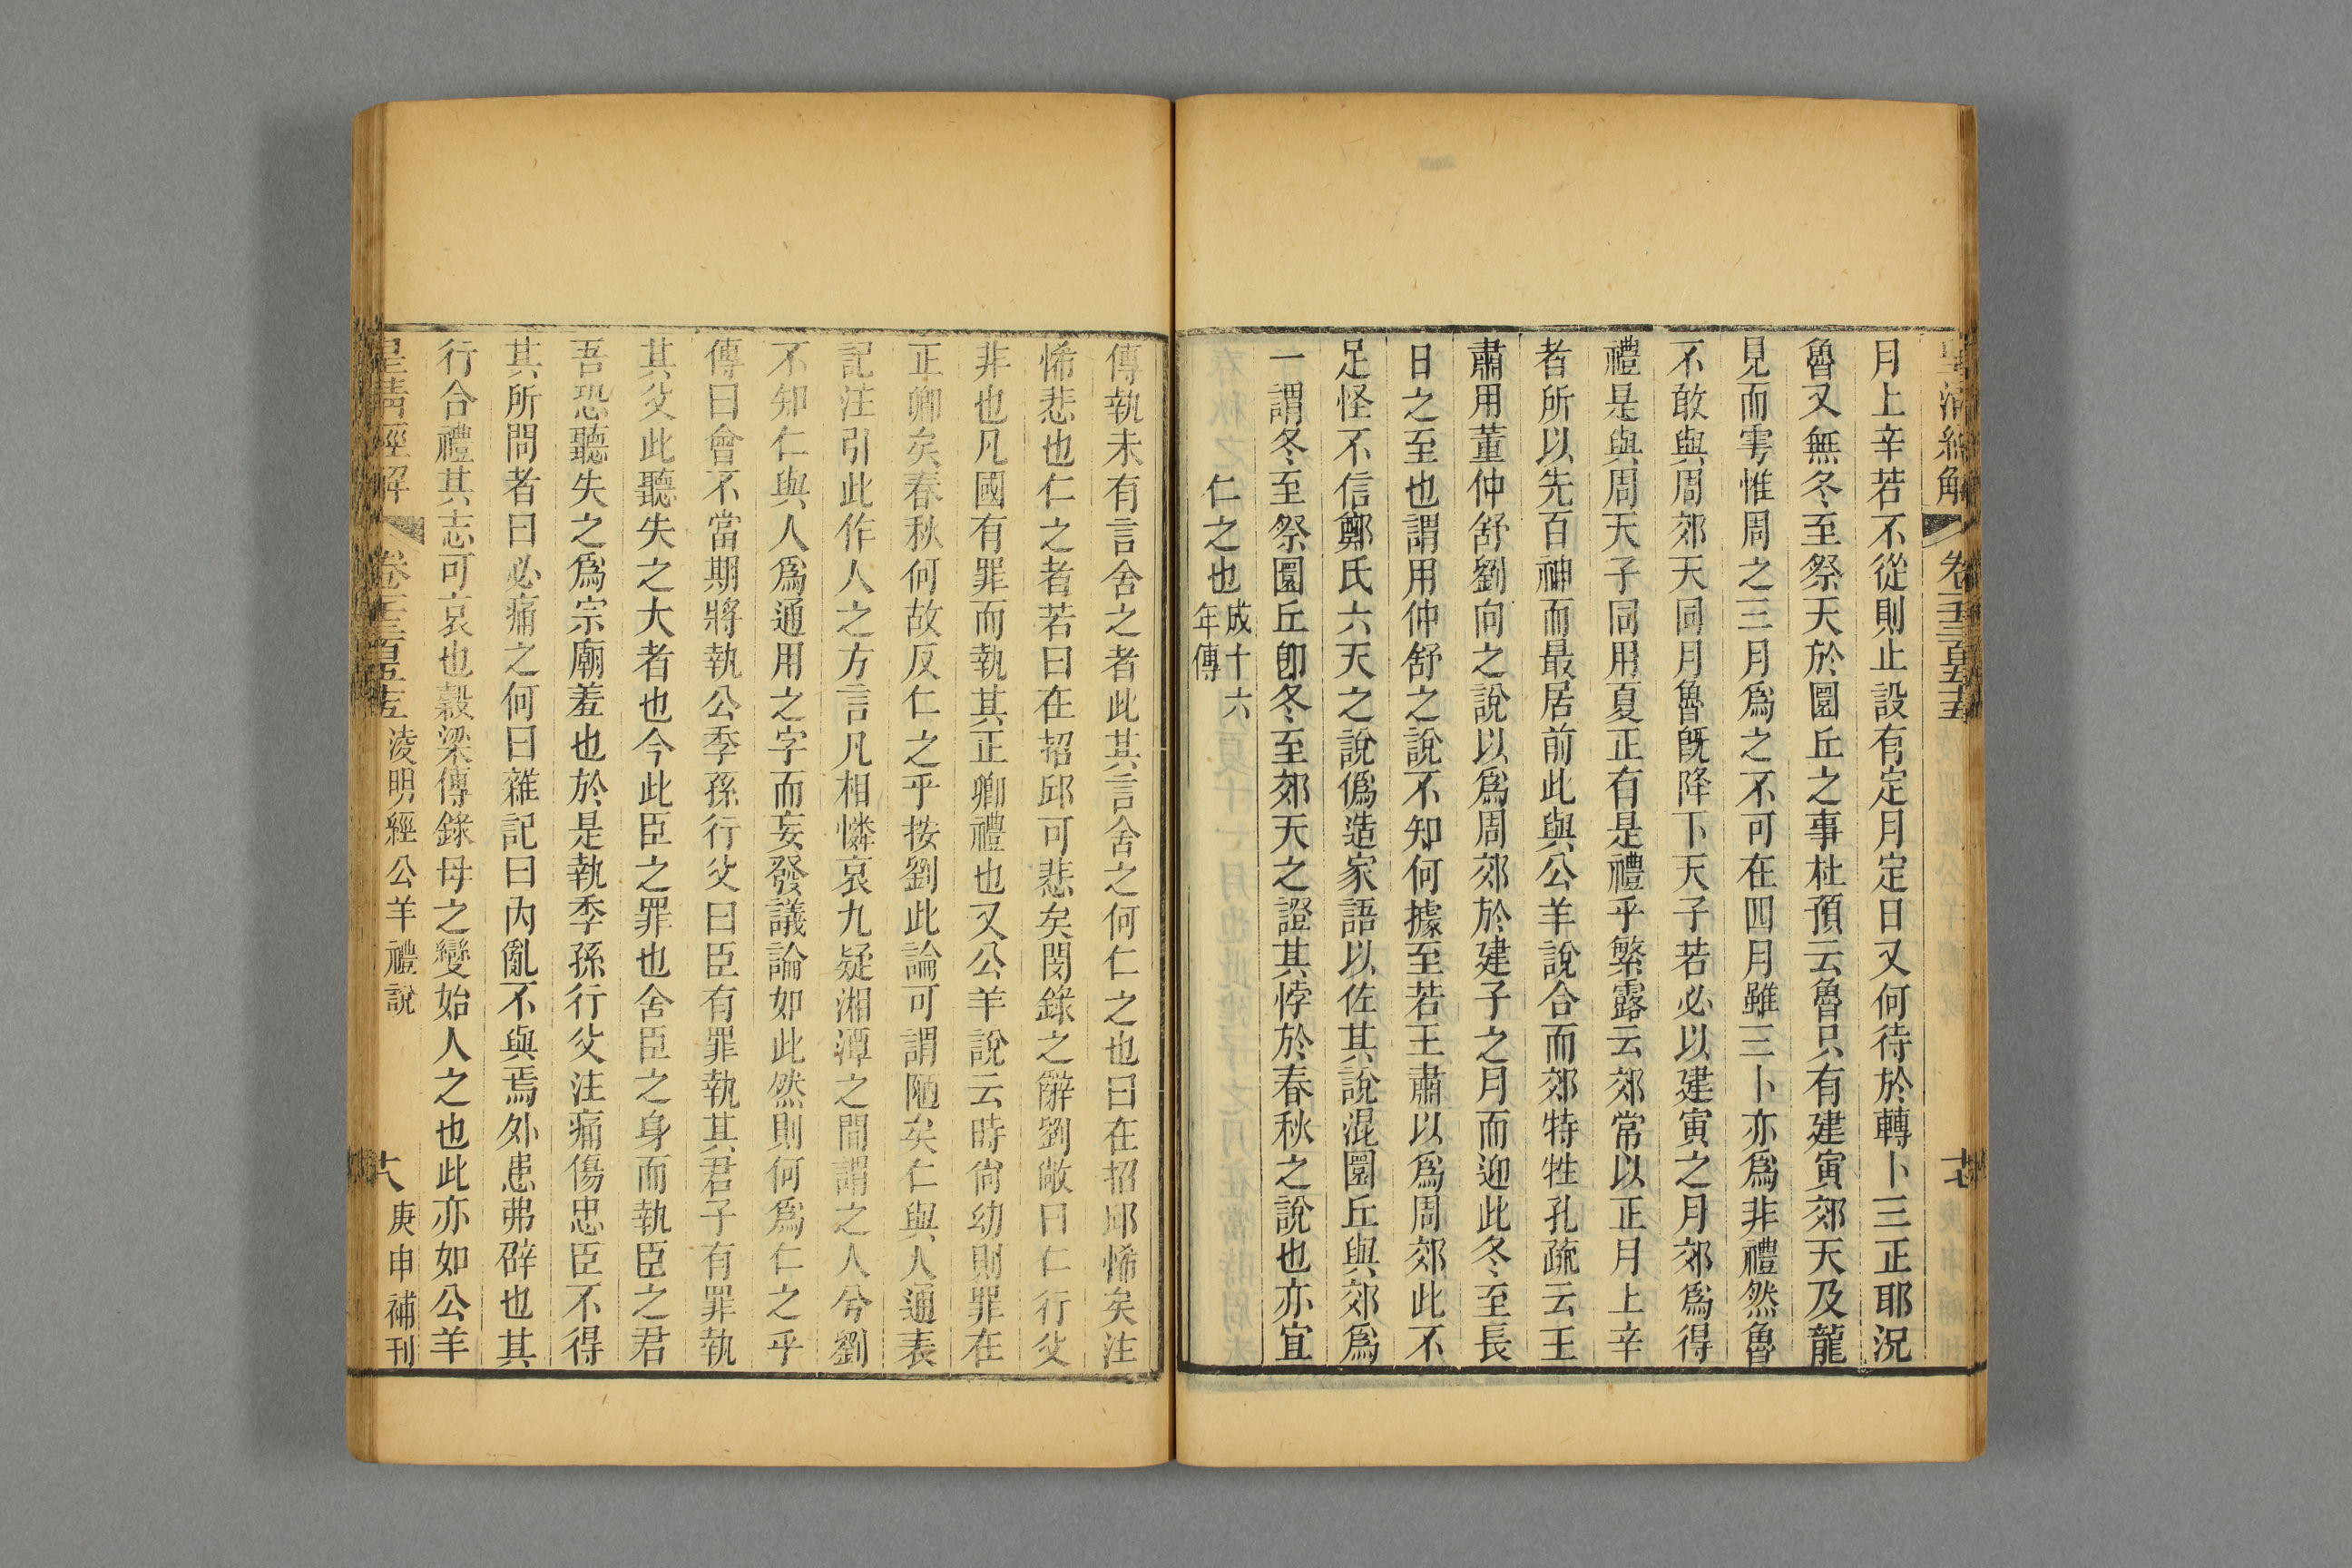 皇清經解 卷一千三百五十五 十七
月上辛若不從則止設有定月定日又何待於轉卜三正耶況
魯又無冬至祭天於圜丘之事杜預云魯只有建寅郊天及龍
見而雩惟周之三月爲之不可在四月雖三卜亦爲非禮然魯
不敢與周郊天同月魯既降下天子若必以建寅之月郊爲得
禮是與周天子同用夏正有是禮乎繁露云郊常以正月上辛
者所以先百神而最居前此與公羊說合而郊特牲孔疏云王
肅用董仲舒劉向之說以爲周郊於建子之月而迎此冬至長
日之至也謂用仲舒之說不知何據至若王肅以爲周郊此不
足怪不信鄭氏六天之說僞造家語以佐其說混圜丘與郊爲
一謂冬至祭圜丘卽冬至郊天之證其悖於春秋之說也亦宜
仁之也成十六年傳
傳執未有言舍之者此其言舍之何仁之也曰在招邱悕矣注
悕悲也仁之者若曰在招邱可悲矣閔錄之辭劉敞曰仁行父
非也凡國有罪而執其正卿禮也又公羊說云時尙幼則罪在
正卿矣春秋何故反仁之乎按劉此論可謂陋矣仁與人通表
記注引此作人之方言凡相憐哀九疑湘潭之間謂之人兮劉
不知仁與人爲通用之字而妄發議論如此然則何爲仁之乎
傳曰會不當期將執公季孫行父曰臣有罪執其君子有罪執
其父此聽失之大者也今此臣之罪也舍臣之身而執臣之君
吾恐聽失之爲宗廟羞也於是執季孫行父注痛傷忠臣不得
其所問者曰必痛之何曰雜記曰內亂不與焉外患弗辟也其
行合禮其志可哀也穀梁傳錄母之變始人之也此亦如公羊
皇清經解 卷一千三百五十五 凌明經公羊禮說 十八 庚申補刊